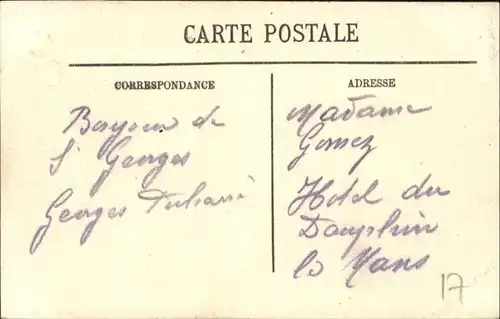 CARTE POSTALE
CORRESPONDANCE
de
S Georges
Georges
ADRESSE
Madame
Gomez
Hotel du
Dauphin
le Mans
17